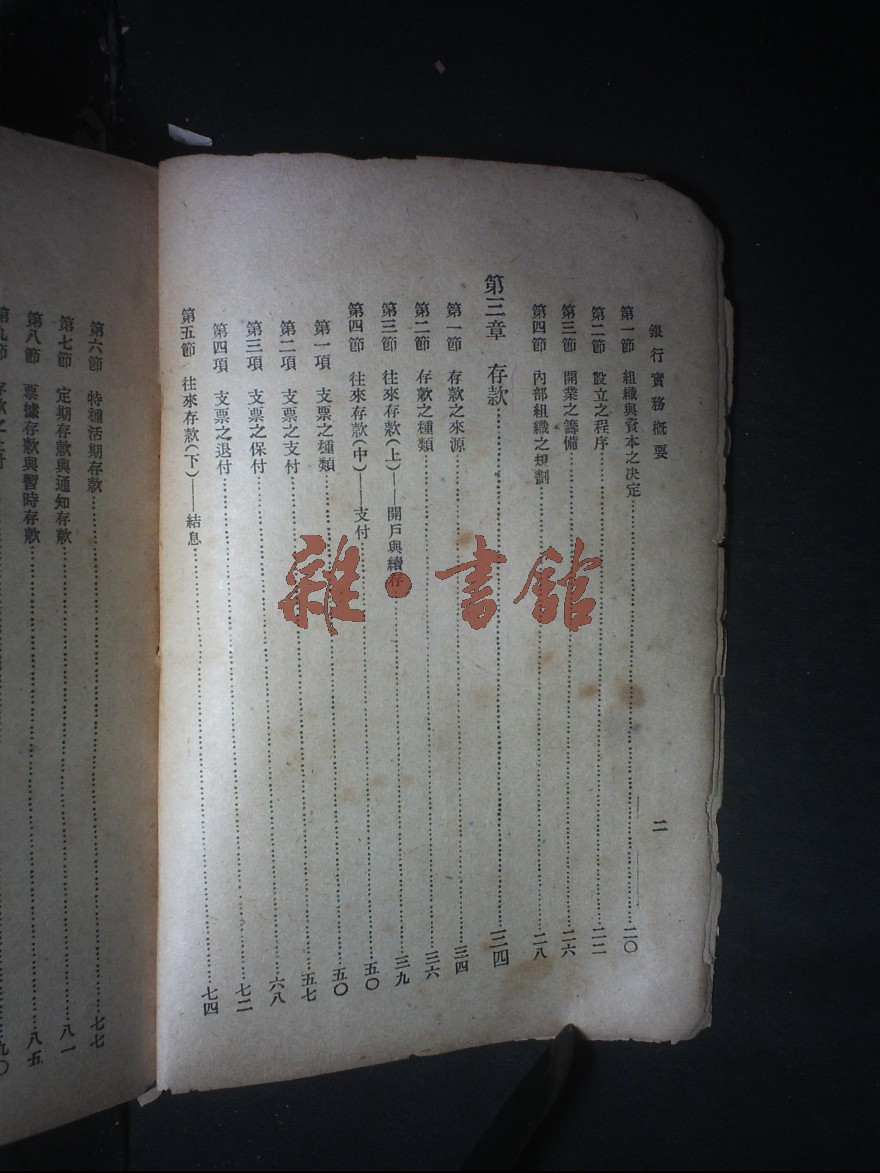 銀行實務概要　二
第一節　組織與資本之決定……二〇
第二節　設立之程序……二二
第三節　開業之籌備……二六
第四節　內部組織之規劃……二八
第三章　存款……三四
第一節　存款之來源……三四
第二節　存款之種類……三六
第三節　往來存款(上)——開戶與續存……三九
第四節　往來存款(中)——支付……五〇
第一項　支票之種類……五〇
第二項　支票之支付……五七
第三項　支票之保付……六八
第四項　支票之退付……七二
第五節　往來存款(下)——結息……七四
第六節　特種活期存款……七七
第七節　定期存款與通知存款……八一
第八節　票據存款與暫時存款……八五
第九節　存款之……九〇
雜·書館